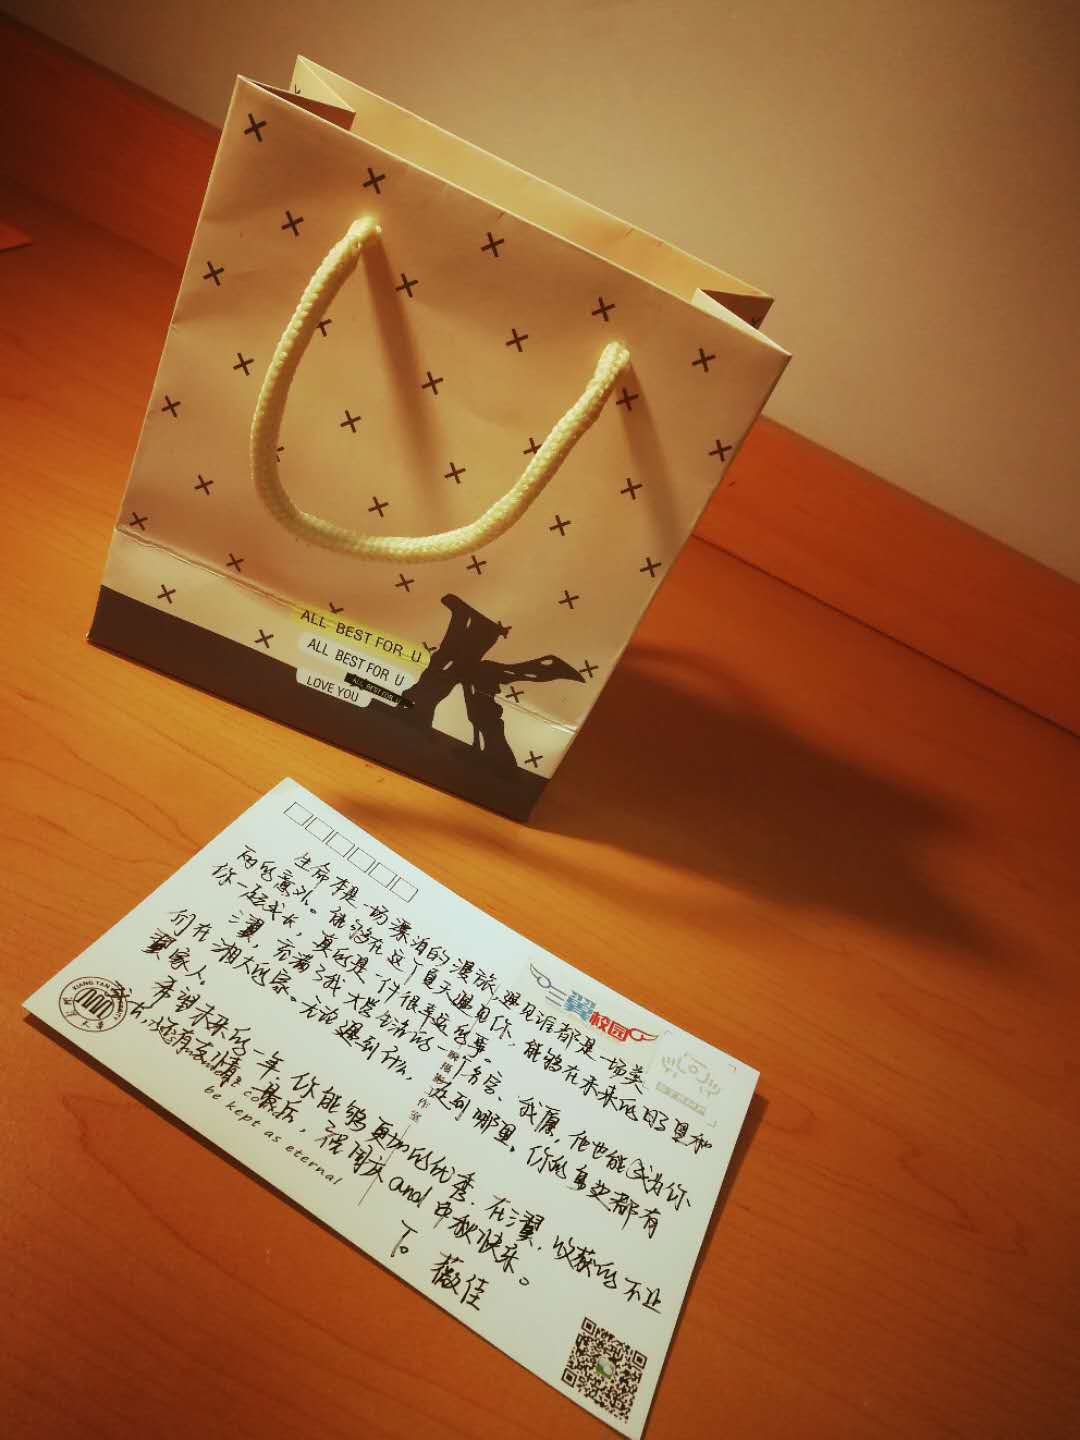 ALL BEST FOR U
ALL BEST FOR U
ALL BEST FOR U
LOVE YOU
生命本是一场漂泊的漫旅,遇见谁都是一场美
丽的意外。能够在这个夏天遇见你,能够在未来的日子里和
你一起成长,真的是一件很幸运的事。
三翼,充满了我大学生活的一个名字、我愿,他也能成为你
们在湘大的家。无论遇到什么,达到哪里,你的身边都有
翼家人。
希望未来的一年,你能够更加的优秀.在三翼,收获的不止
成长,还有友情、最后,祝国庆and中秋快乐。
To 薇佳
翼校园
XIANG TAN
湘潭大学
工作室
be kept as eternal